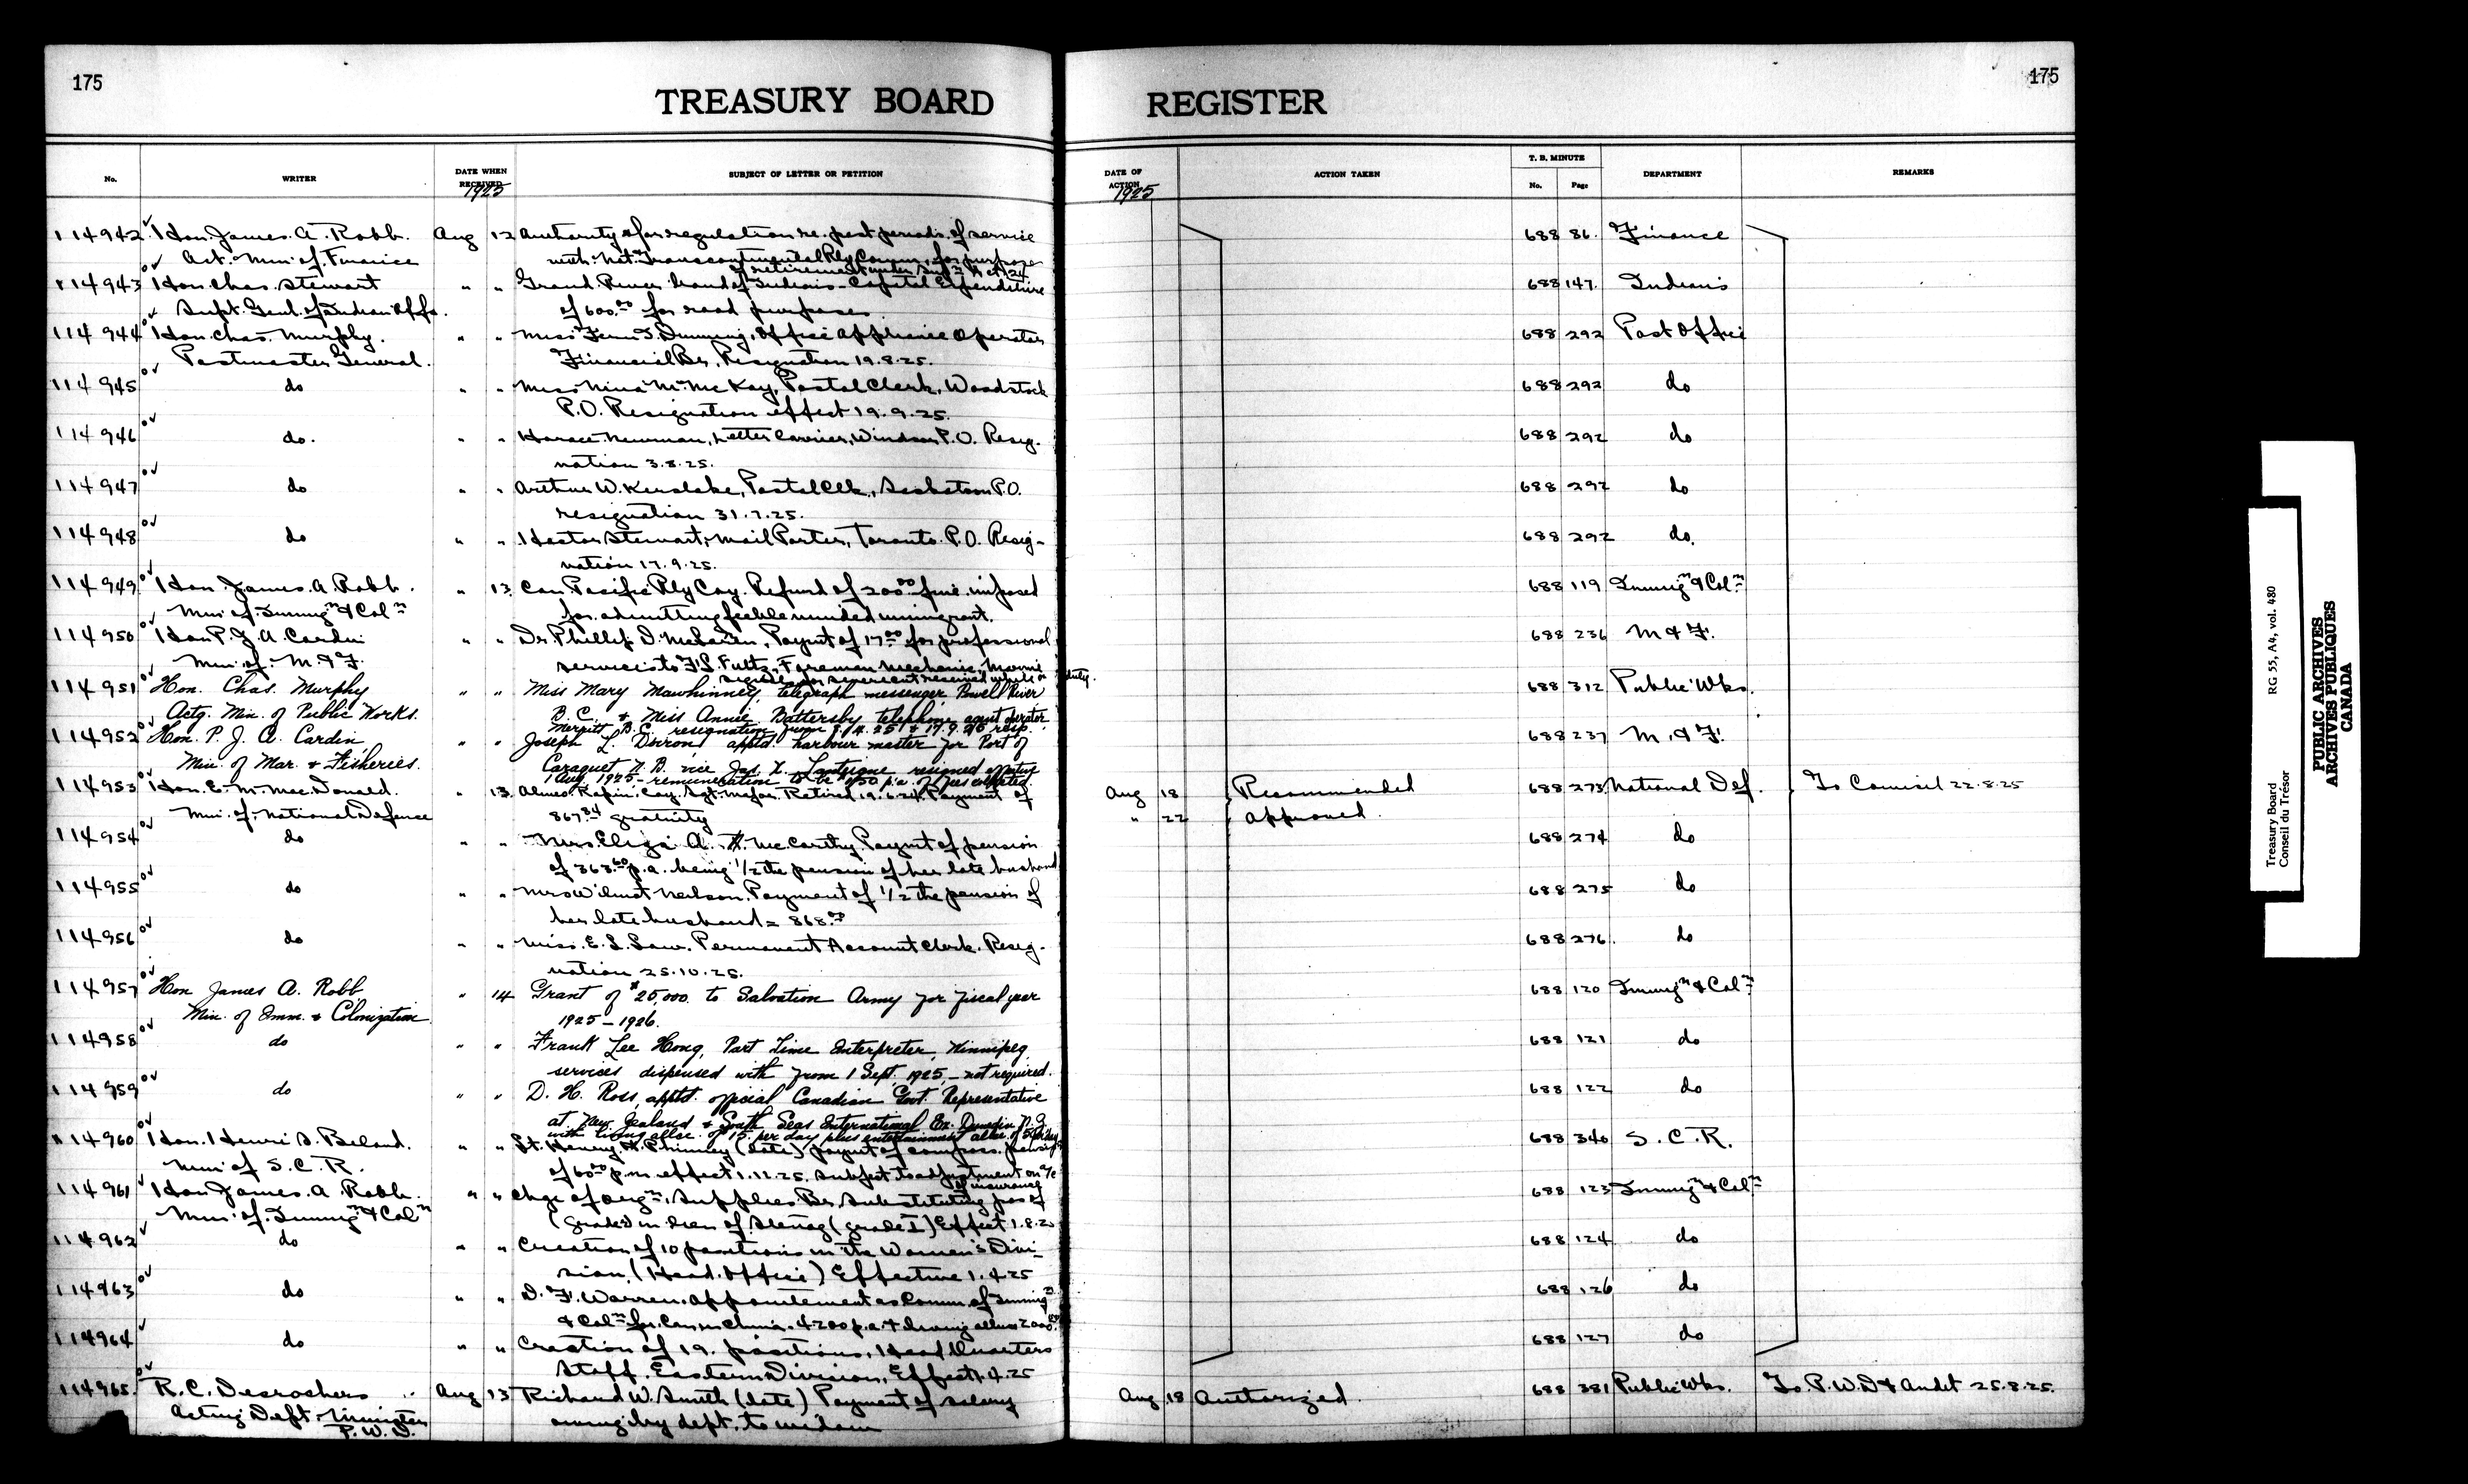 175
TREASURY BOARD REGISTER
175
No. WRITER DATE WHEN RECEIVED SUBJECT OF LETTER OR PETITION DATE OF ACTION ACTION TAKEN T. B. MINUTE No. Page DEPARTMENT REMARKS
1925 1925
114942 Hon. James A. Robb. Aug 12 Authority for regulation re. past periods of service 688 86. Finance
Act. Min. of Finance with Nat. Transcontinental Rly Comm, for purpose
of retirement under Act 24
114943 Hon. Chas. Stewart " " Grand River band of Indians - Capital Expenditure 688 147. Indians
Supt. Genl. of Indian Affs. of 600.00 for road purposes
114944 Hon. Chas. Murphy. " " Miss Fern I. Dunning, Office Appliance Operator 688 292 Post Office
Postmaster General. Financial Br, Resignation 19.8.25.
114945 do " " Miss Nina M. McKay, Postal Clerk, Woodstock 688 292 do
P.O. Resignation effect 19.9.25.
114946 do. " " Horace Newman, Letter Carrier, Windsor P.O. Resig- 688 292 do
nation 3.8.25.
114947 do " " Arthur W. Kerslake, Postal Clk., Saskatoon P.O. 688 292 do
resignation 31.7.25.
114948 do " " Hector Stewart, Mail Porter, Toronto P.O. Resig- 688 292 do.
nation 17.9.25.
114949 Hon. James A. Robb. " 13 Can. Pacific Rly Coy. Refund of 200.00 fine imposed 688 119 Immign & Coln
Min. of Immign & Coln for admitting feeble minded immigrant.
114950 Hon P. J. A. Cardin " " Dr. Phillip D. McLaren, Paymt of 17.00 for professional 688 236 M & F.
Min. of M. & F. services to F. S. Fultz, Foreman Mechanic, Marine
received while on duty.
114951 Hon. Chas. Murphy " " Miss Mary Mawhinney, telegraph messenger, Powell River 688 312 Public Wks.
Actg. Min. of Public Works. B.C. & Miss Annie Battersby telephone agent operator
Merritt, B.C. resignation from & 17.9.25 resp.
114952 Hon. P. J. A. Cardin, " " Joseph L. Doiron, apptd. harbour master for Port of 688 237 M. & F.
Min. of Mar. & Fisheries. Caraquet N.B. vice Jas. N. Lanteigne resigned effecting
1 Aug. 1925 - remuneration to be $150 p.a. if fees collected.
114953 Hon. E. M. MacDonald. " 13 Rapin, Coy. Sgt. Major. Retired 19.6.24. Payment of Aug 18 Recommended 688 273 National Def. To Council 22.8.25
Min. of National Defence 867.84 gratuity " 22 Approved.
114954 do " " Mrs. Eliza A. H. McCarthy. Paymt of pension 688 274 do
of 363.60 p.a. being 1/2 the pension of her late husband
114955 do " " Mrs Wilmot Neilson. Payment of 1/2 the pension of 688 275 do
her late husband = 868.
114956 do " " Miss. E. L. Law. Permanent Account Clerk. Resig- 688 276. do
nation 25.10.25.
114957 Hon James A. Robb " 14 Grant of $25,000. to Salvation Army for fiscal year 688 120 Immign & Coln
Min. of Imm. & Colonization. 1925 - 1926.
114958 do " " Frank Lee Hong, Part Time Interpreter, Winnipeg 688 121 do
services dispensed with from 1 Sept. 1925, - not required.
114959 do " " D. H. Ross, apptd. official Canadian Govt. Representative 688 122 do
at New Zealand & South Seas International Ex. Dunedin N.Z.
with living allce. of 15. per day plus entertainment allce.
114960 Hon. Henri S. Beland. " " Lt. Henry H. Phinney (late) paymt of compass. pension 688 340 S. C. R.
Min of S. C. R. of 60.00 p.m. effect 1.12.25. subject to adjustment on a/c
of insurance
114961 Hon James. A. Robb. " " Chge of orgn, Supplies Br. substituting pos of 688 123 Immign & Coln
Min. of Immign & Coln in lieu of Stenog (grade I) Effect 1.8.25
114962 do " " Creation of 10 positions in the Women's Divi- 688 124 do
sion. (Head Office) Effective 1.4.25
114963 do " " D. F. Warren. appointement as Comm. of Immign 688 126 do
& Coln for Can. in China. 4200 p.a. & living allnce 2000.00
114964 do " " Creation of 19. positions, Head Quarters 688 127 do
Staff. Eastern Division, Effect 1.4.25
114965. R. C. Desrochers Aug 13 Richard W. Smith (late) Payment of salary Aug 18 Authorized. 688 381 Public Wks. To P. W. D & Audit 25.8.25.
Acting Dept. Minister owing by dept. to widow
P. W. D.
Treasury Board RG 55, A4, vol. 480
Conseil du Trésor
PUBLIC ARCHIVES
ARCHIVES PUBLIQUES
CANADA